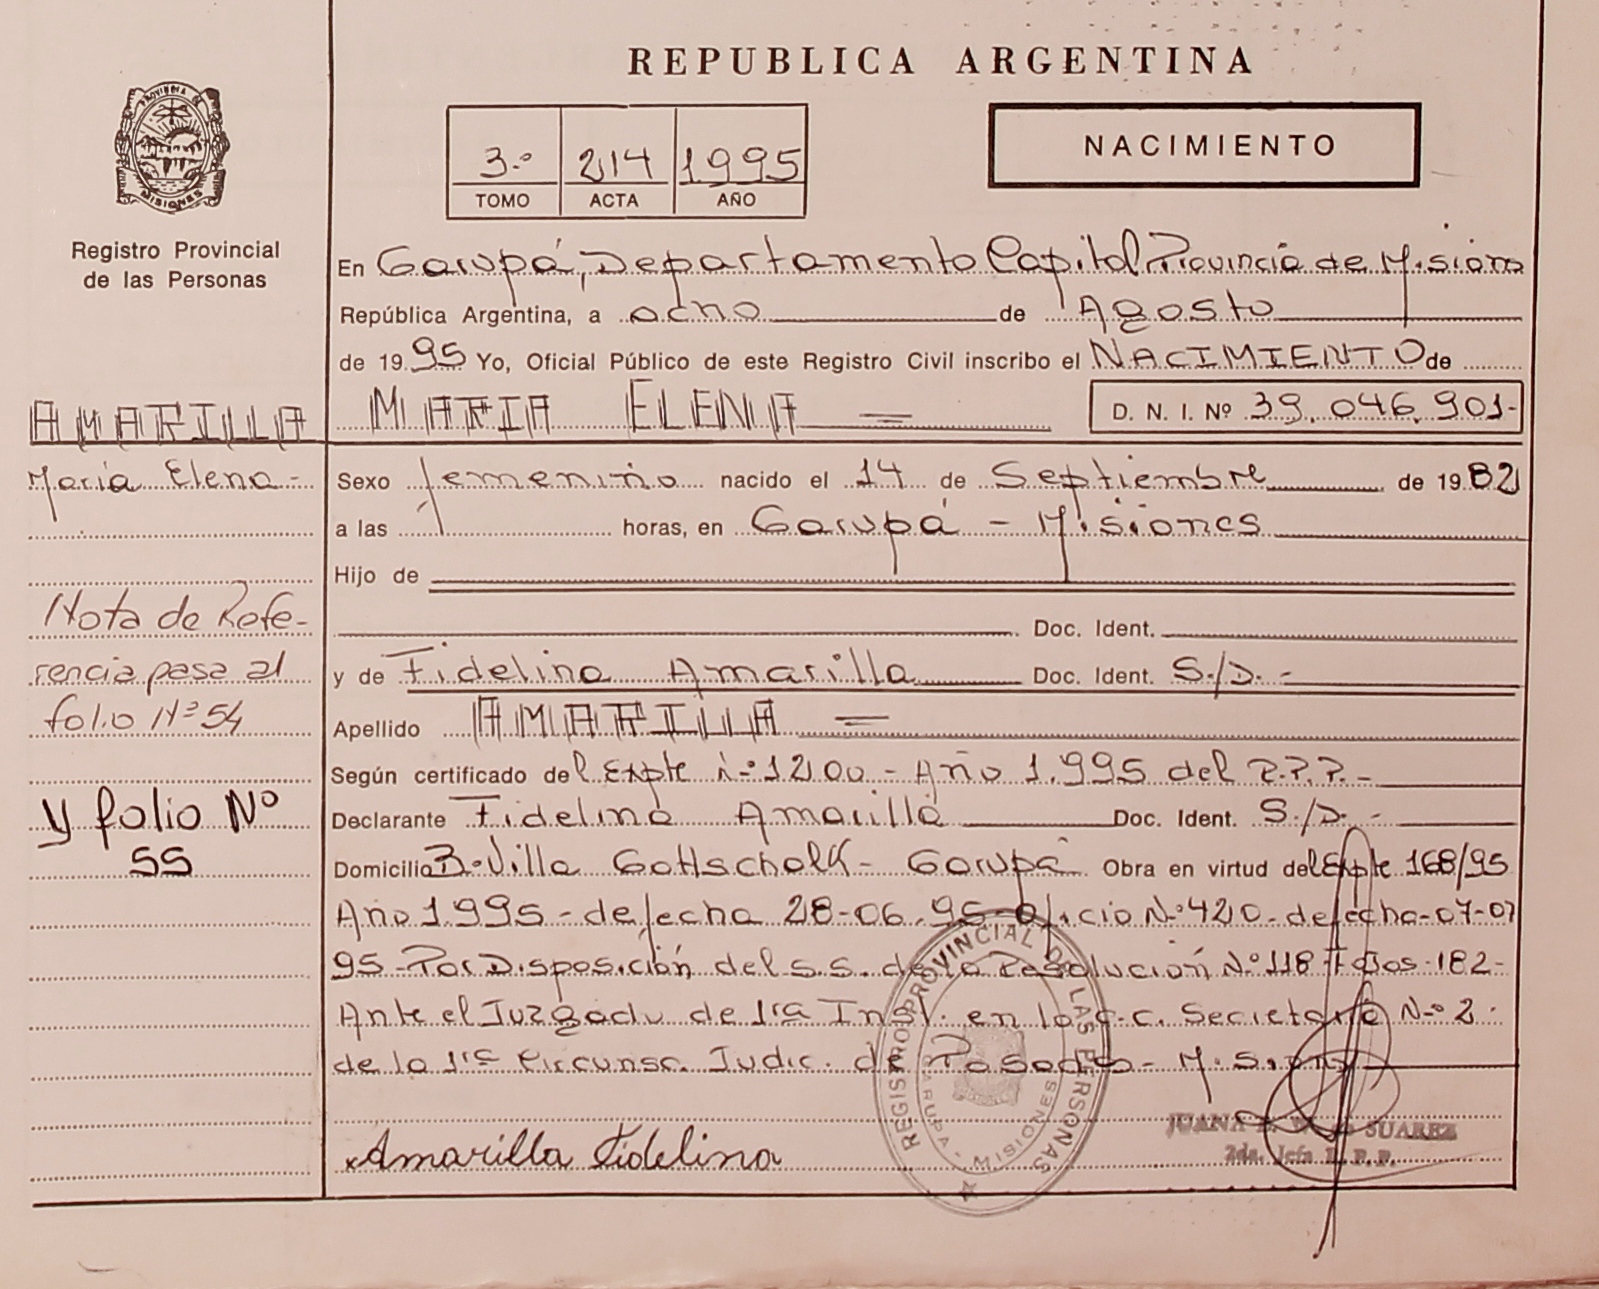 REPUBLICA ARGENTINA
PROVINCIA DE
MISIONES
Registro Provincial
de las Personas
3.º 214 1995
TOMO ACTA AÑO
NACIMIENTO
En Garupá, Departamento Capital Provincia de Misiones
República Argentina, a ocho de Agosto
de 1995 Yo, Oficial Público de este Registro Civil inscribo el NACIMIENTO de
MARIA ELENA = D. N. I. Nº 39.046.901-
AMARILLA
María Elena -
Nota de Refe-
rencia pasa al
folio Nº 54
y folio Nº
55
Sexo femenino nacido el 14 de Septiembre de 1982
a las horas, en Garupá - Misiones
Hijo de
Doc. Ident.
y de Fidelina Amarilla Doc. Ident. S./D. -
Apellido AMARILLA =
Según certificado del Expte n.º 1200 - Año 1.995 del R.P.P. -
Declarante Fidelina Amarilla Doc. Ident. S./D. -
Domicilio B.º Villa Gottschalk - Garupá Obra en virtud del Expte 168/95
Año 1.995 - de fecha 28-06-95 - Oficio N.º 420 - de fecha - 07-07
95 - Por Disposición del S.S. de la Resolución N.º 118 Fojas 182 -
Ante el Juzgado de 1ra Inst. en lo C.C. Secretaría N.º 2
de la 1ra Circunsc. Judic. de Posadas - Misiones
Amarilla Fidelina
REGISTRO PROVINCIAL DE LAS PERSONAS
GARUPA - MISIONES
JUANA SUAREZ
2da. Jefa R. P. P.